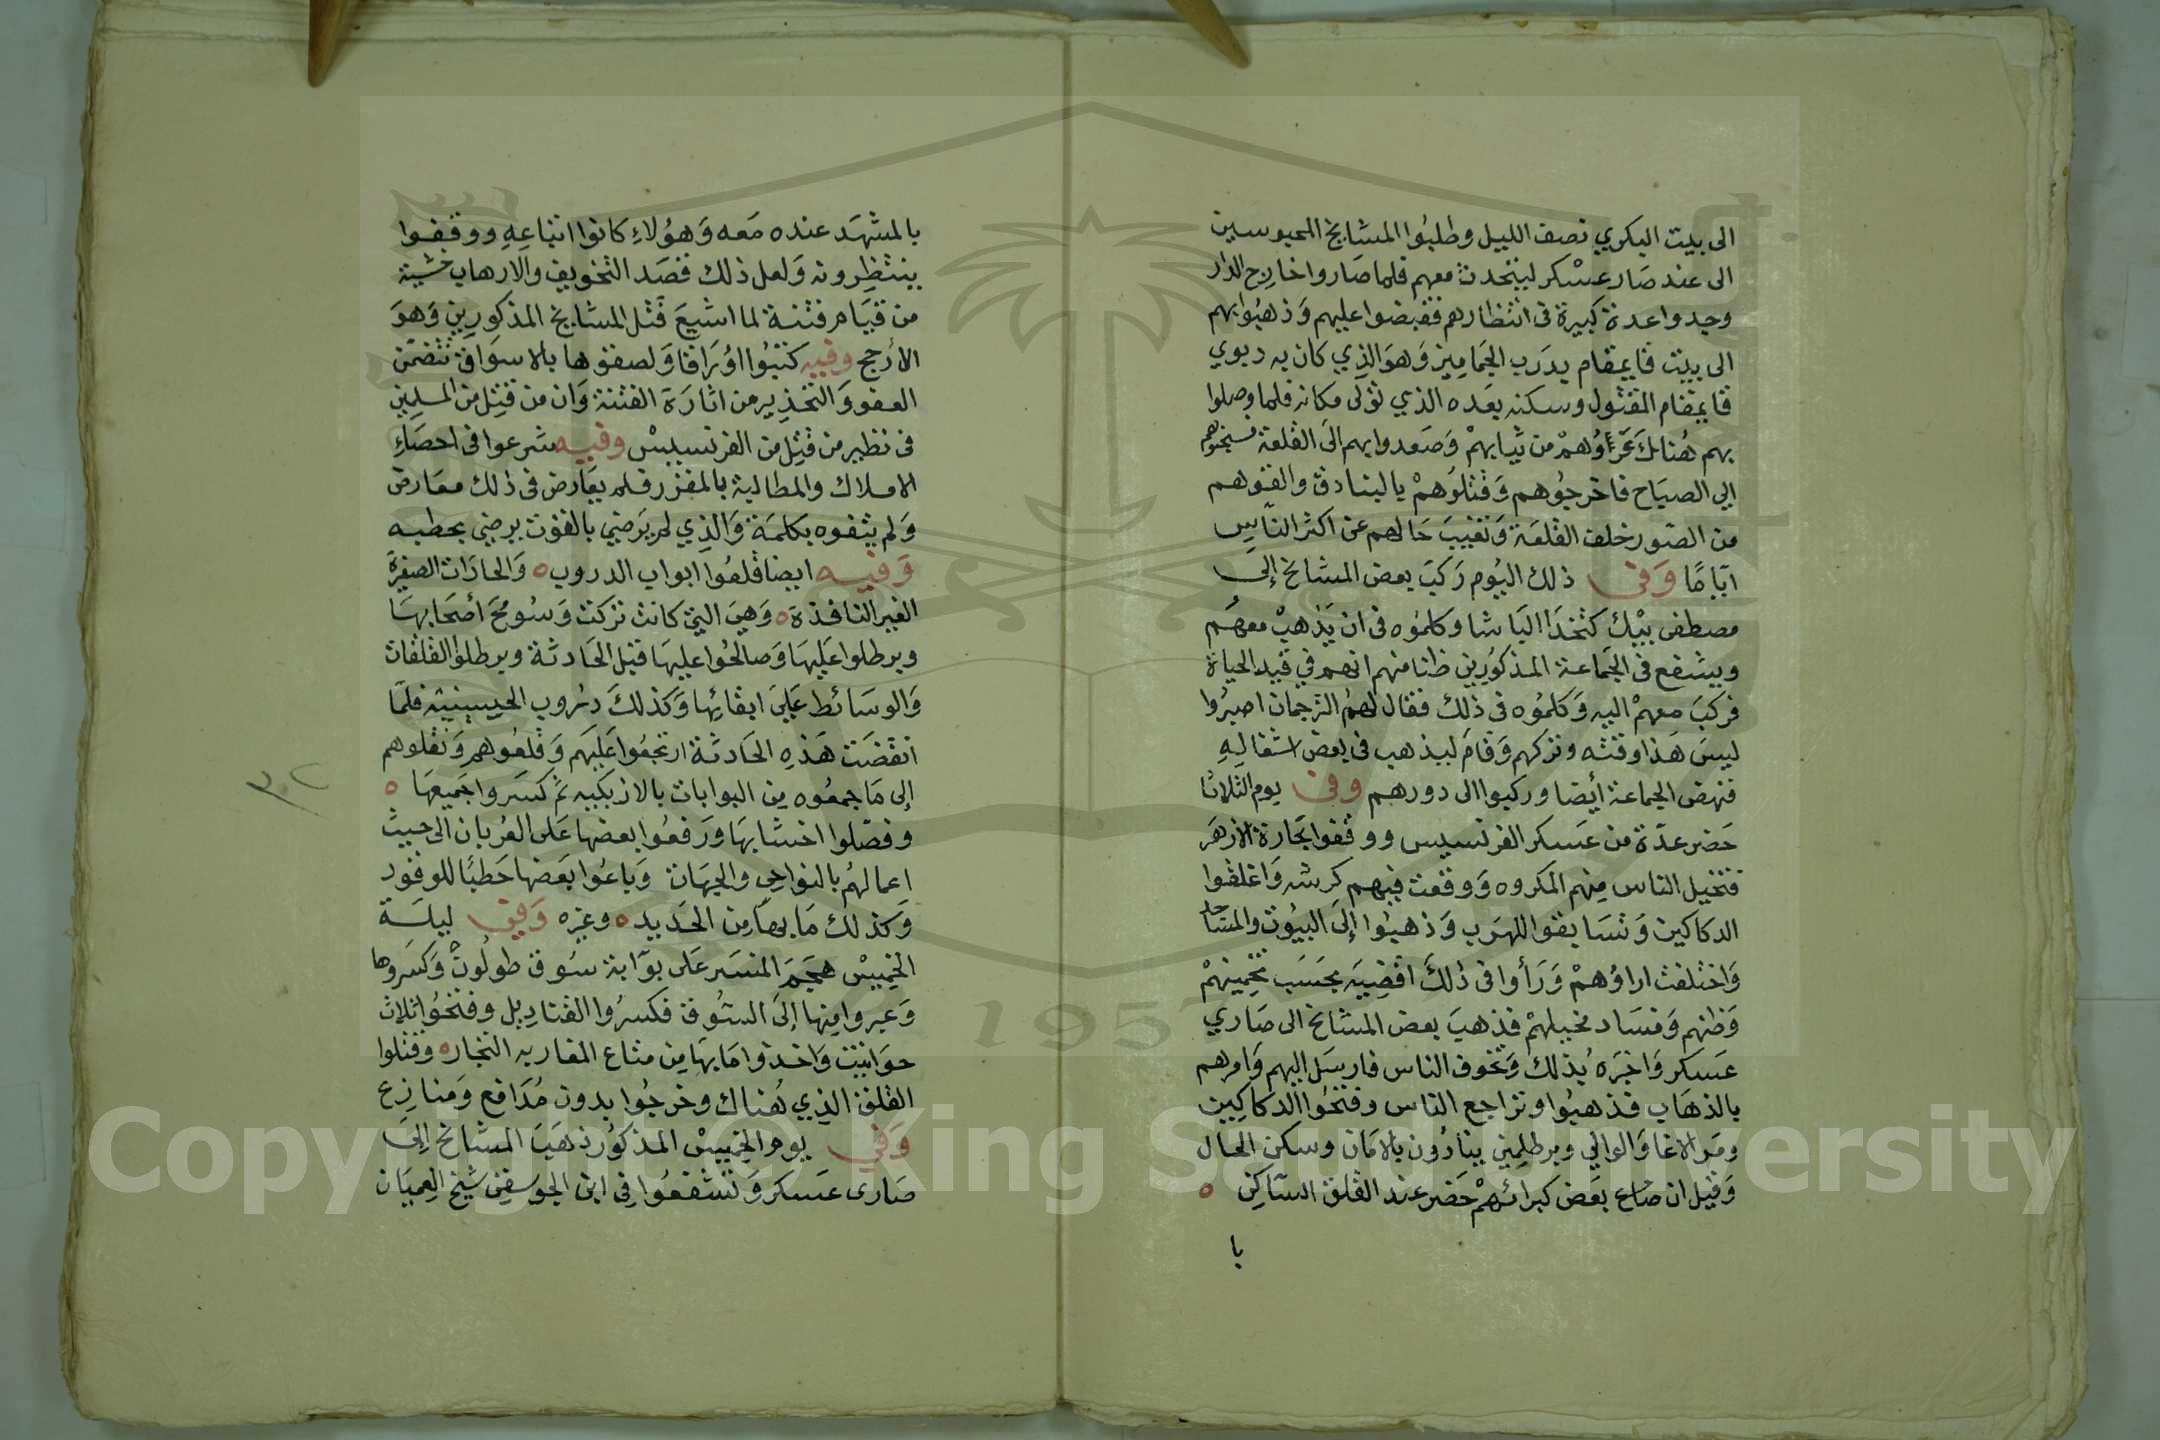 الى بيت البكري نصف الليل وطلبُوا المشايخ المحبوسين
الى عند صَار عسْكر ليتحدث معهم فلما صَاروا خارج الدّار
وجدوا عدة كبيرة فى انتظارهم فقبضوا عليهم وَذهبُوا بهم
الى بيت قايمقام بدَرب الجَمامِيز وَهوَ الذِي كان به دبوي
قايمقام المقتول وسكنه بعَده الذي تولى مكانه فلما وصلوا
بهم هُناك عَرّاوُهمْ من ثيابهمْ وَصَعدوا بهم الَى القلعة فسجنوهم
الِي الصبَاح فاخرجُوهم وَقتلُوهمْ بالبنادق والقوهم
من الصّور خلف القلعَة وَتغيبَ حَالهم عن اكثر النّاسِ
ايّامًا وَفى ذلك اليُوم رَكبَ بعض المشائخ إلى
مصطفى بيْك كتخدَا البَاشا وكلمُوه فى ان يَذهبْ معهَم
ويشفع فى الجَماعة المذكورِين ظنا منهم انهم في قيد الحياة
فركبَ معهمْ اليه وَكلمُوه فى ذلك فقال لهمُ الترجمان اصبرُوا
ليسَ هَذا وقته وتركهم وَقامَ ليذهب فى بعض اشغالِهِ
فنهض الجماعة أيضا وركبوا الى دورهم وفى يوم الثلاثا
حَضر عدّة من عَسكر الفرنسيس ووقفوا بحَارة الازهَر
فتخيل الناس مِنهم المَكروه وَوقعت فيهم كرشه وَاغلقوا
الدكاكين وَتسَابقوا للهَرَب وَذهبُوا إلَى البيُوت والمسَاجد
وَاختلفت اراؤهمْ وَرَأوا فى ذلكَ اقضِيَه بحَسَب تخمِينهمْ
وَظنهم وَفسَاد مخيلهمْ فذهبَ بعض المشائخ الى صَاري
عَسكر وَاخبَرَه بُذلك وَتخوف الناس فارسَل اليهم وَامرهم
بالذهَاب فذهبُوا وتراجع الناس وفتحُوا الدكاكِين
ومَر الاغا وَالوالي وبرطلِمِين ينادُون بالامَان وسكن الحال
وَقيل ان صَارع بعَض كبرائهمْ حَضر عند القلق السّاكِن ٥
با
بالمشهَد عنده مَعه وَهؤلاءِ كانوا اتباعِهِ ووقفوا
ينتظرِونه وَلعل ذلك قصَد التخويف والارهاب خشية
من قيَام فتنة لما اشيعَ قتل المشايخ المذكورِين وَهوَ
الأرجح وفيه كتبُوا اوُرَاقا وَلصقوها بالاسوَاق تتضمّن
العفو وَالتحذِير من اثارَة الفتنة وَان من قتِل من المسلمين
فى نظير من قتِل من الفرنسيسْ وفيه شرعوا فى احصَاءِ
الاملاك والمطالبة بالمقرر فلم يعَارض فى ذلك معَارض
وَلم يتفوه بكلمَة وَالذِي لم يَرضي بالقوت يرضي بحطبه
وَفيه ايضا قلعُوا ابواب الدروب ٥ وَالحارَات الصغِيرَة
الغير النافذة ٥ وَهيَ التي كانت تركت وَسُومحَ أصحَابهَا
وبرطلوا عَليهَا وَصالحُوا عليهَا قبل الحَادثة وبرطلوا القلقات
وَالوسَائط عَلَى ابقائها وَكذلكَ دُروب الحسينية فلمّا
انقضَت هَذهِ الحَادثة ارتجعُوا عَليهَم وَقلعُوهم وَنقلوهم
إلى مَا جمعُوه مِن البوابات بالازبَكيه ثم كسَروا جَميعَهَا ٥
وفصّلوا اخشابهَا وَرَفعُوا بعضها عَلى العُربان الى حيث
اعمالهُم بالنواحِي والجهَات وَبَاعُوا بعَضها حَطبًا للوقود
وَكذلك مَا بهَا مِن الحَديد ٥ وغيره وَفى ليلة
الخمِيسْ هجَمَ المنسَر عَلى بوّابة سُوق طولُونْ وَكسَروها
وَعبروا مِنها إلَى السُّوق فكسرُوا القنادِيل وفتحُوا ثلاث
حوَانيت وَاخذوا مَا بهَا مِن متاع المغاربه التجار ٥ وقتلوا
القلق الذِي هُناك وخرجُوا بدون مُدَافع وَمنازِع
وَفي يوم الخمِيسْ المذكور ذهَبَ المشائخ إلَى
صَارى عَسكر وَتشفعُوا فِى ابن الجوسقِى شيخ العِميَان